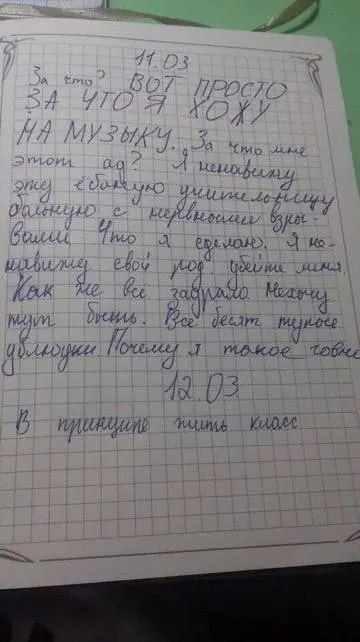 11.03
За что? ВОТ ПРОСТО
ЗА ЧТО Я ХОЖУ
НА МУЗЫКУ. За что мне
этот ад? Я ненавижу
эту ёбаную учительницу
больную с нервными взры-
вами. Что я сделаю. Я не-
навижу свой род. убейте меня.
Как же всё задрало. Нехочу
тут быть. Все бесят тупые
ублюдки. Почему я такое говно
12.03.
В принципе жить класс